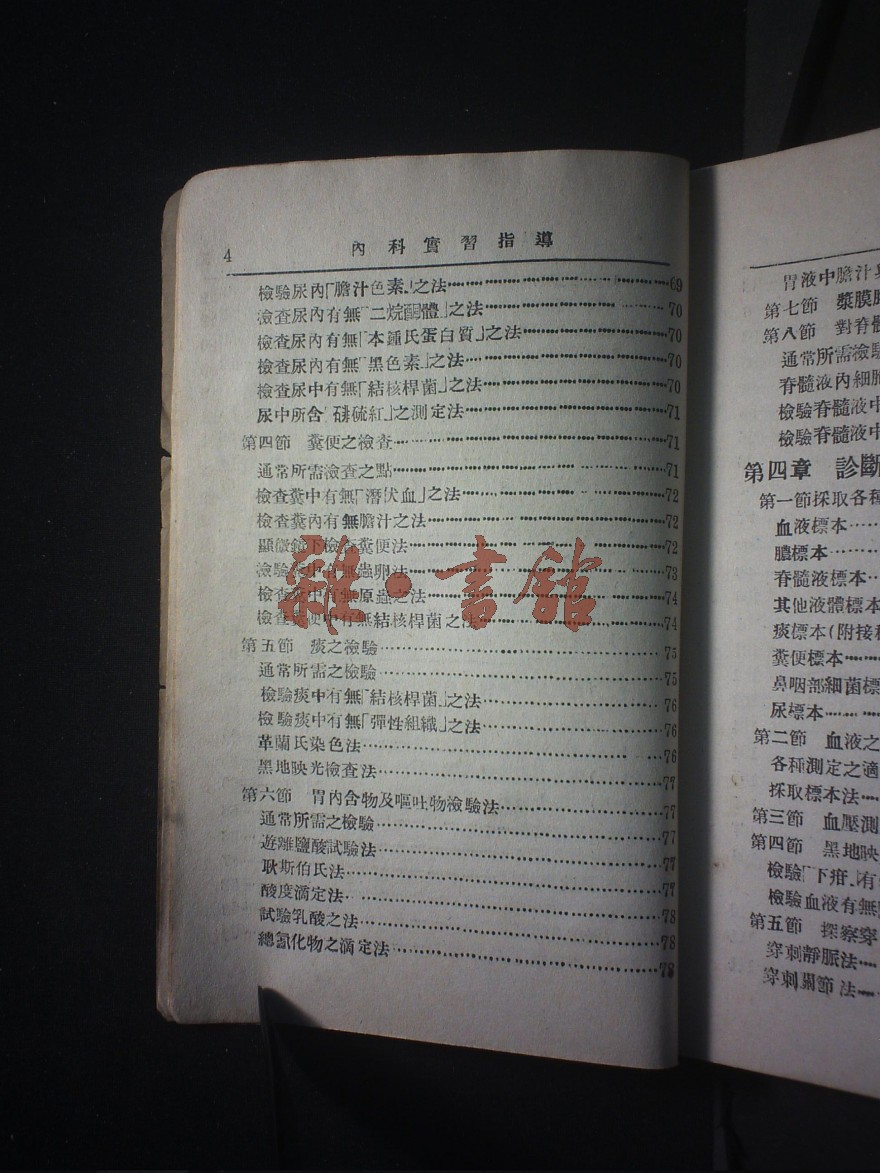 4
內科實習指導
檢驗尿內「膽汁色素」之法………69
檢查尿內有無「二烷酮體」之法………70
檢查尿內有無「本鍾氏蛋白質」之法………70
檢查尿內有無「黑色素」之法………70
檢查尿中有無「結核桿菌」之法………70
尿中所含「磺硫紅」之測定法………71
第四節 糞便之檢查………71
通常所需檢查之點………71
檢查糞中有無「潛伏血」之法………72
檢查糞內有無膽汁之法………72
顯微鏡下檢查糞便法………72
檢驗糞中有無蟲卵法………73
檢查糞中有無原蟲之法………74
檢查糞便中有無結核桿菌之法………74
第五節 痰之檢驗………75
通常所需之檢驗………75
檢驗痰中有無「結核桿菌」之法………76
檢驗痰中有無「彈性組織」之法………76
革蘭氏染色法………76
黑地映光檢查法………77
第六節 胃內含物及嘔吐物檢驗法………77
通常所需之檢驗………77
遊離鹽酸試驗法………77
耿斯伯氏法………77
酸度滴定法………78
試驗乳酸之法………78
總氯化物之滴定法………78
雜·書館
胃液中膽汁
第七節 漿膜
第八節 對脊
通常所需檢
脊髓液內細胞
檢驗脊髓液中
檢驗脊髓液中
第四章 診斷
第一節採取各種
血液標本……
膿標本………
脊髓液標本…
其他液體標本
痰標本(附接種
糞便標本……
鼻咽部細菌標
尿標本………
第二節 血液之
各種測定之適
採取標本法…
第三節 血壓測
第四節 黑地映
檢驗「下疳」有
檢驗血液有無
第五節 探察穿
穿刺靜脈法…
穿刺關節法…